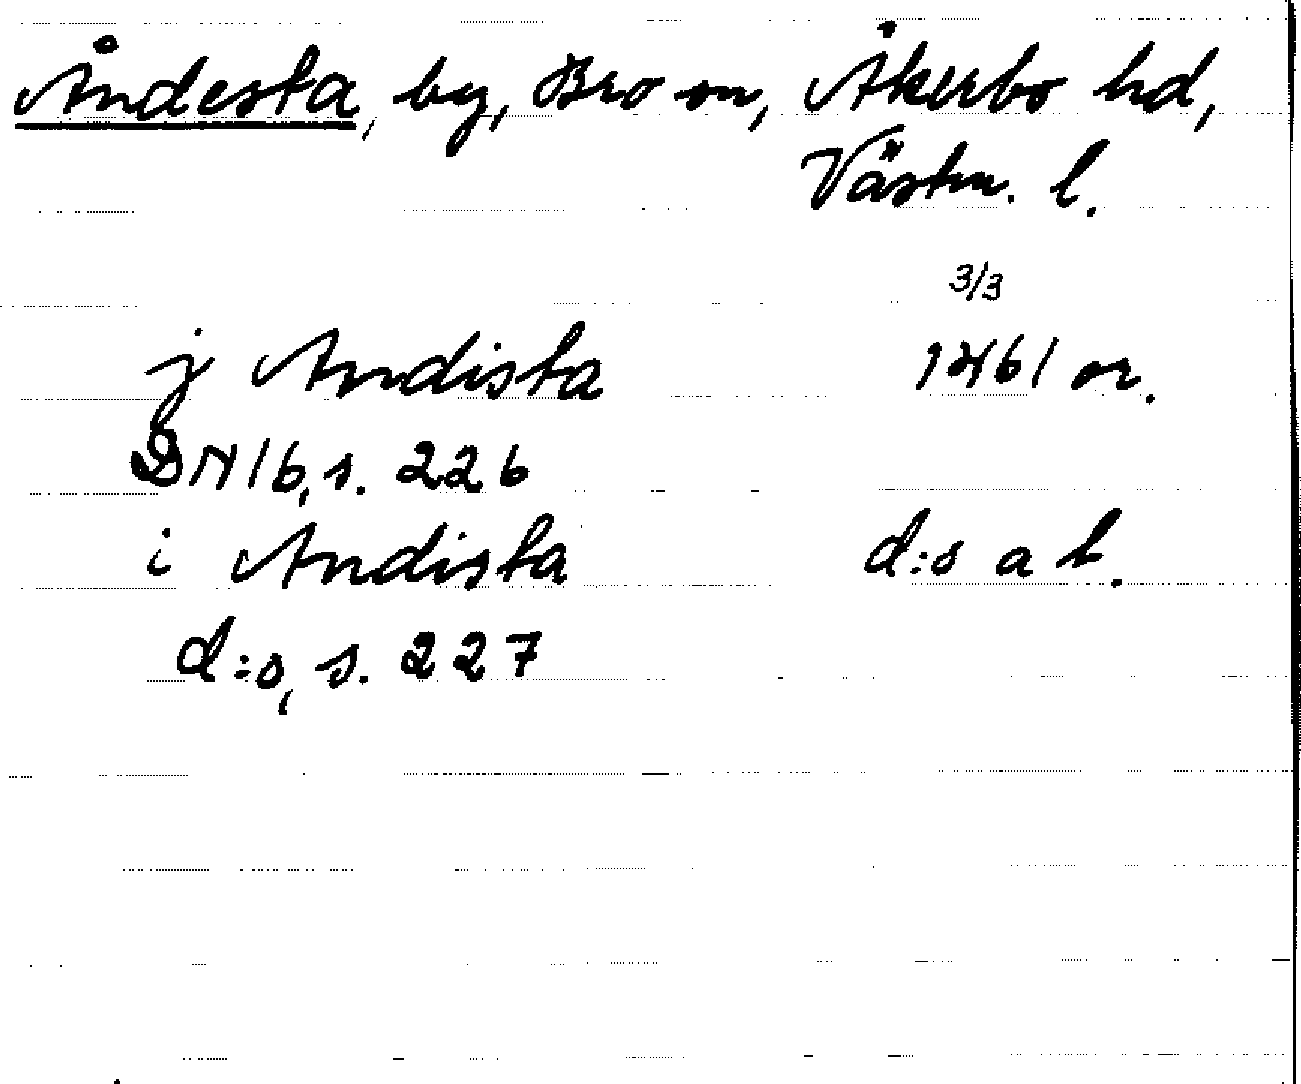 Åndesta, by, Bro sn, Åkerbo hd,
Västm. l.
3/3
j Andista 1461 or.
DN 16, s. 226
i Andista d:s a b.
d:o, s. 227